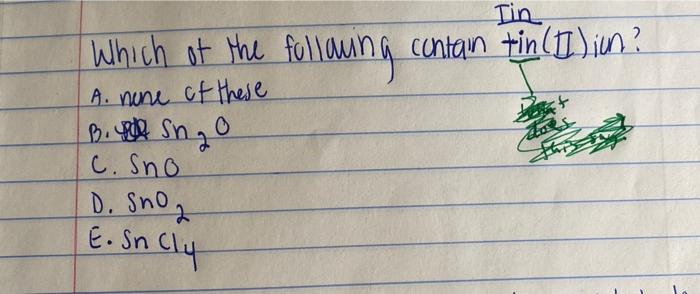 Tin
Which of the following contain tin(II) ion?
A. none of these
B. Sn2O
C. SnO
D. SnO2
E. SnCl4